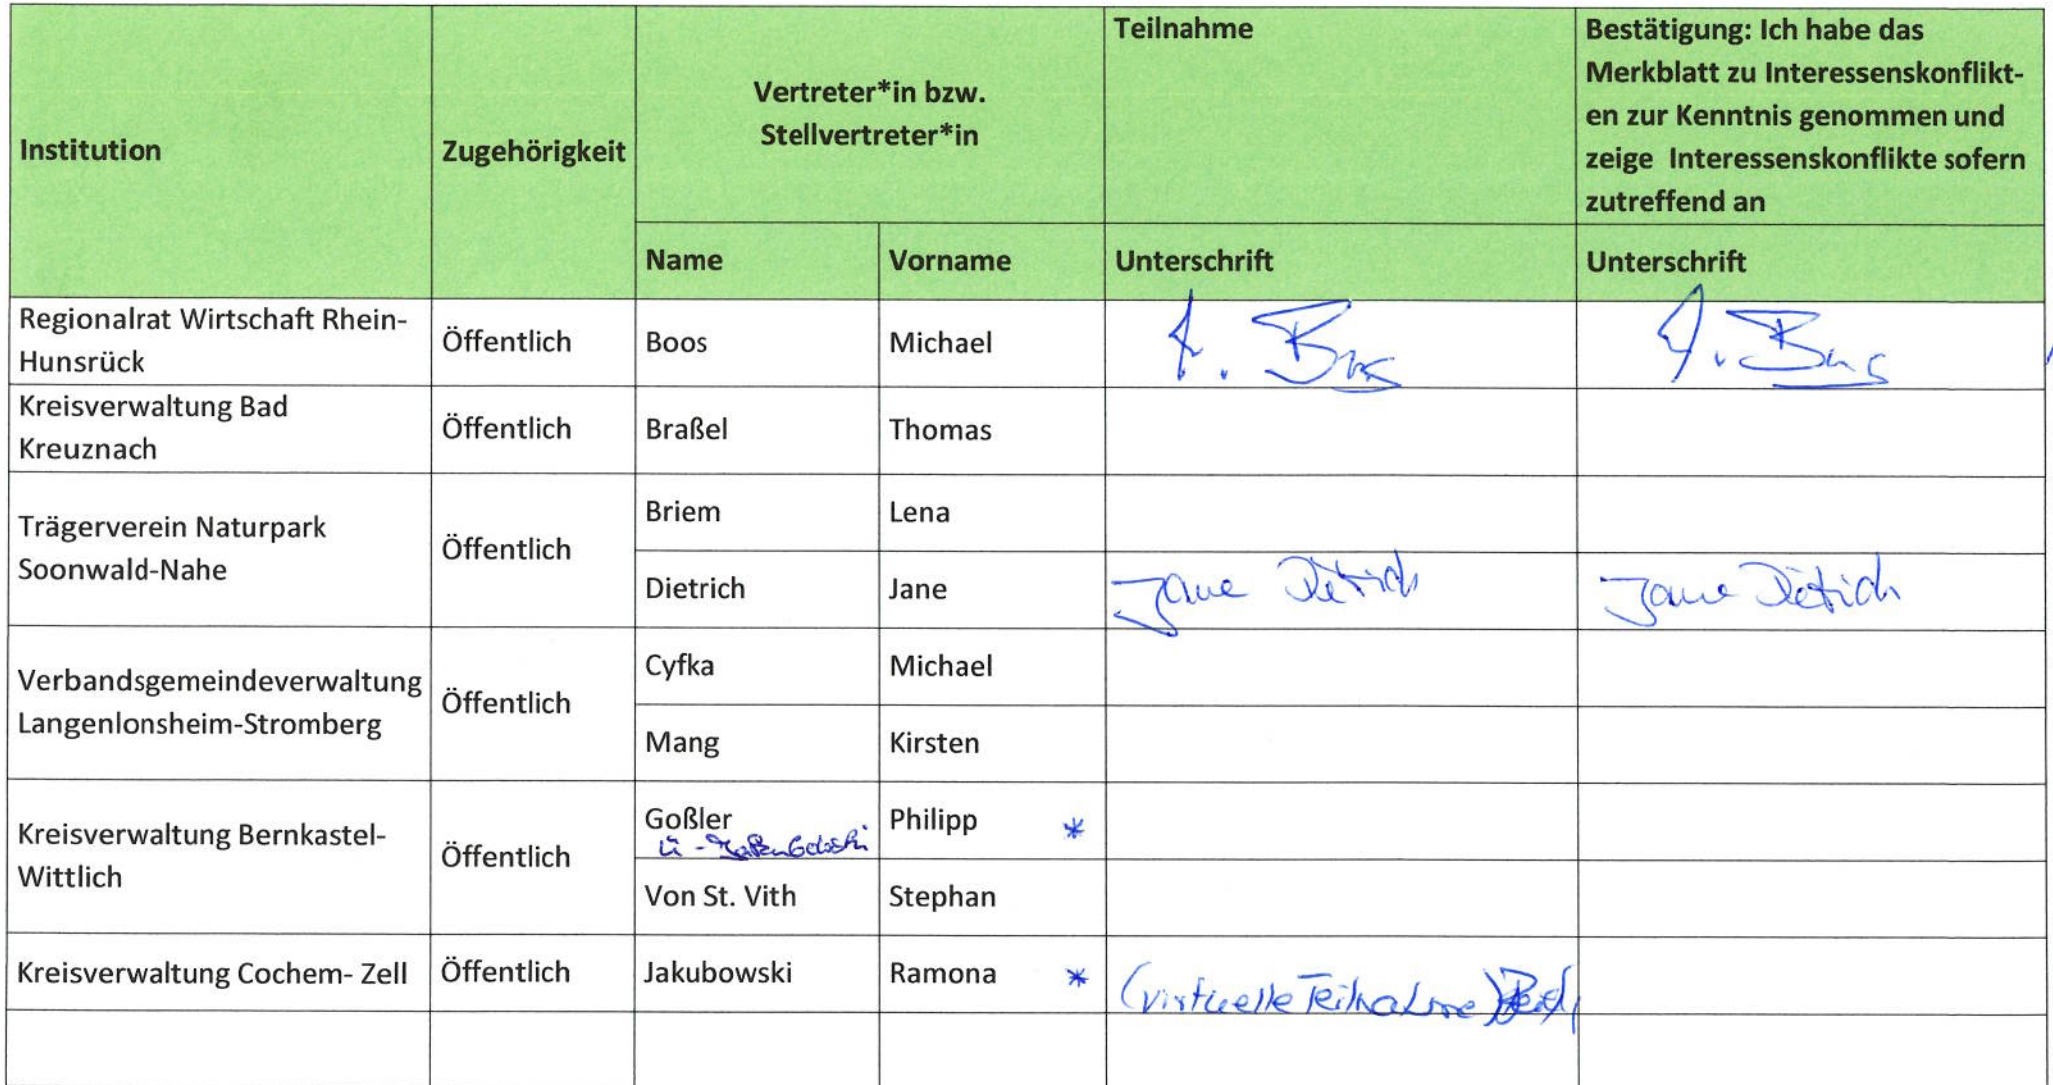 Institution
Zugehörigkeit
Vertreter*in bzw.
Stellvertreter*in
Teilnahme
Bestätigung: Ich habe das
Merkblatt zu Interessenskonflikt-
en zur Kenntnis genommen und
zeige Interessenskonflikte sofern
zutreffend an
Name
Vorname
Unterschrift
Unterschrift
Regionalrat Wirtschaft Rhein-
Hunsrück
Öffentlich
Boos
Michael
Kreisverwaltung Bad
Kreuznach
Öffentlich
Braßel
Thomas
Trägerverein Naturpark
Soonwald-Nahe
Öffentlich
Briem
Lena
Dietrich
Jane
Jane Dietrich
Jane Dietrich
Verbandsgemeindeverwaltung
Langenlonsheim-Stromberg
Öffentlich
Cyfka
Michael
Mang
Kirsten
Kreisverwaltung Bernkastel-
Wittlich
Öffentlich
Goßler
Philipp *
Von St. Vith
Stephan
Kreisverwaltung Cochem- Zell
Öffentlich
Jakubowski
Ramona *
(virtuelle Teilnahme)